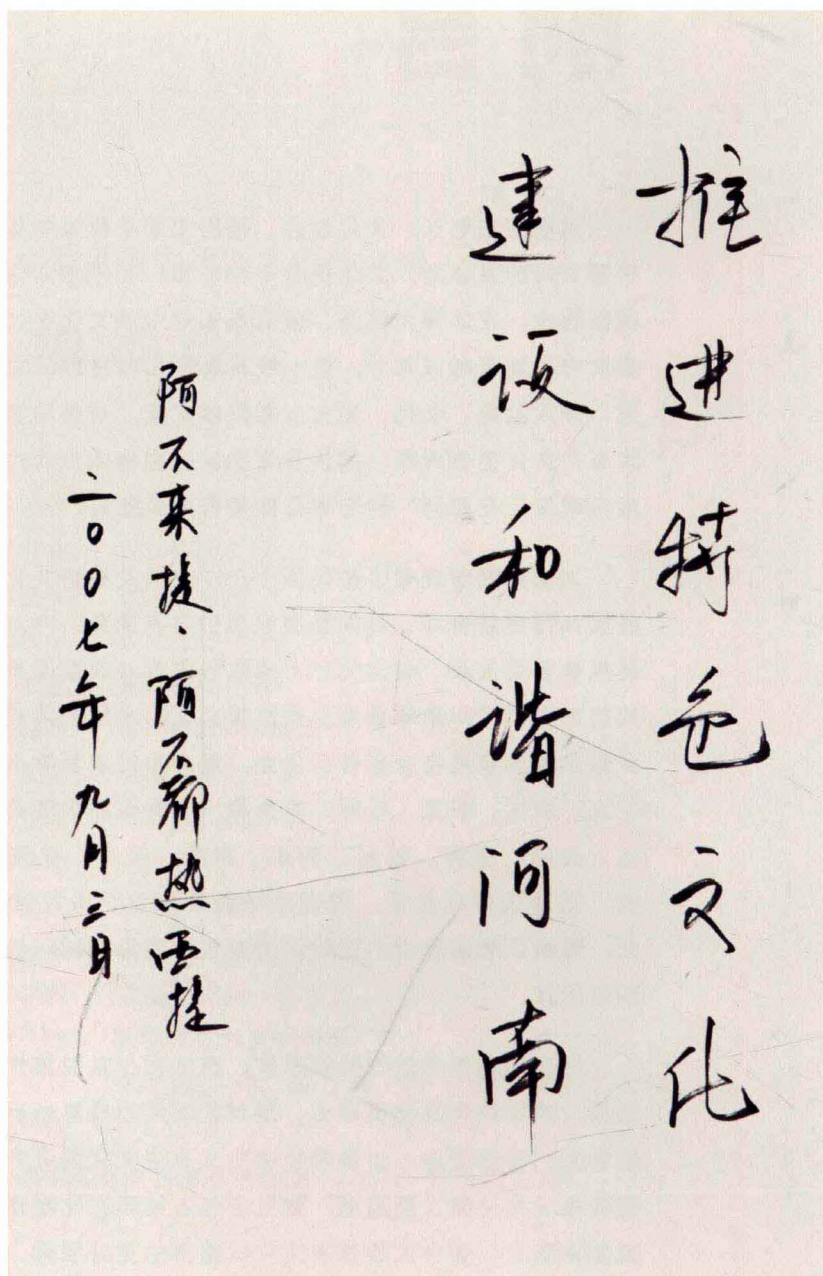 推进特色文化
建设和谐河南
阿不来提·阿不都热西提
二〇〇七年九月三日